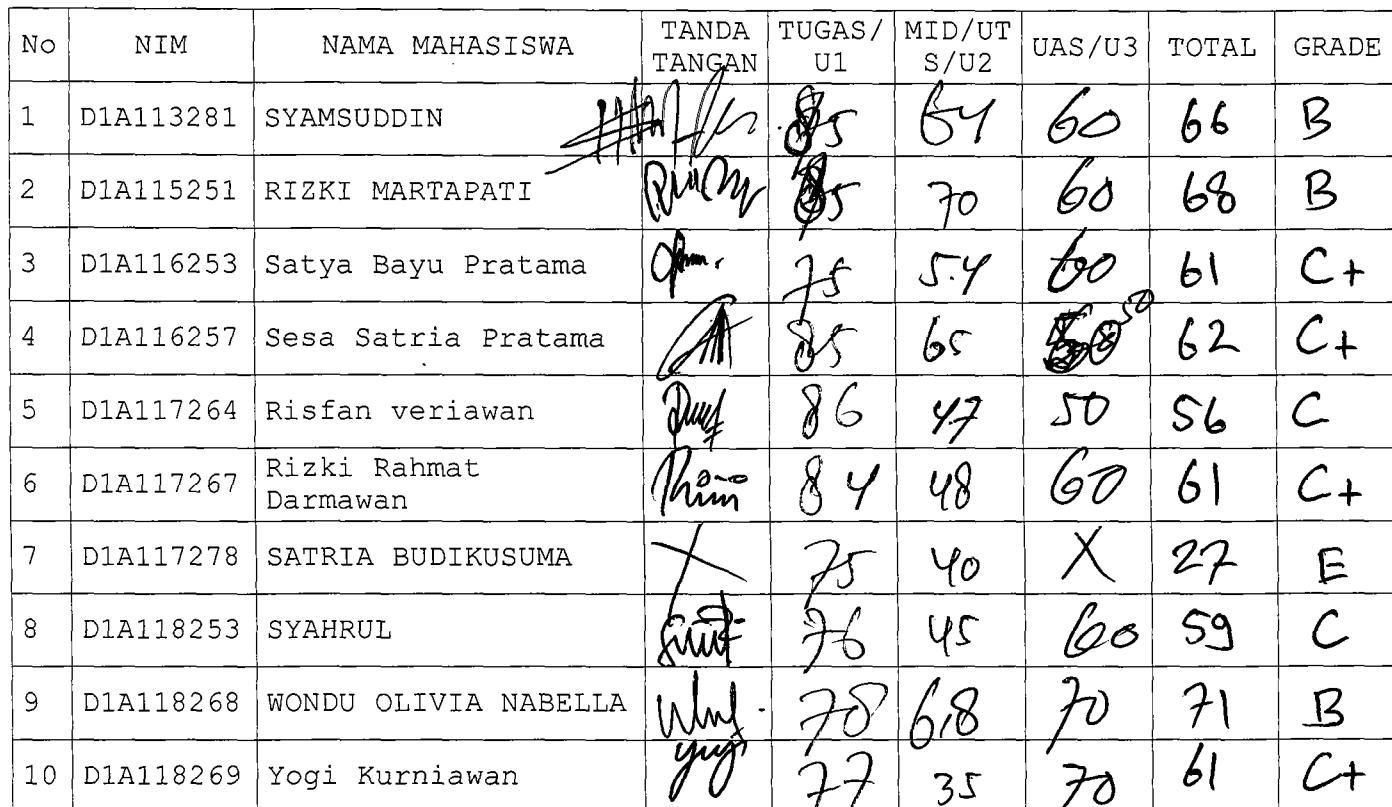 No NIM NAMA MAHASISWA TANDA TANGAN TUGAS/U1 MID/UTS/U2 UAS/U3 TOTAL GRADE
1 D1A113281 SYAMSUDDIN 85 64 60 66 B
2 D1A115251 RIZKI MARTAPATI 85 70 60 68 B
3 D1A116253 Satya Bayu Pratama 75 54 60 61 C+
4 D1A116257 Sesa Satria Pratama 85 65 50 62 C+
5 D1A117264 Risfan veriawan 86 47 50 56 C
6 D1A117267 Rizki Rahmat Darmawan 84 48 60 61 C+
7 D1A117278 SATRIA BUDIKUSUMA X 75 40 X 27 E
8 D1A118253 SYAHRUL 76 45 60 59 C
9 D1A118268 WONDU OLIVIA NABELLA 78 6,8 70 71 B
10 D1A118269 Yogi Kurniawan yugi 77 35 70 61 C+